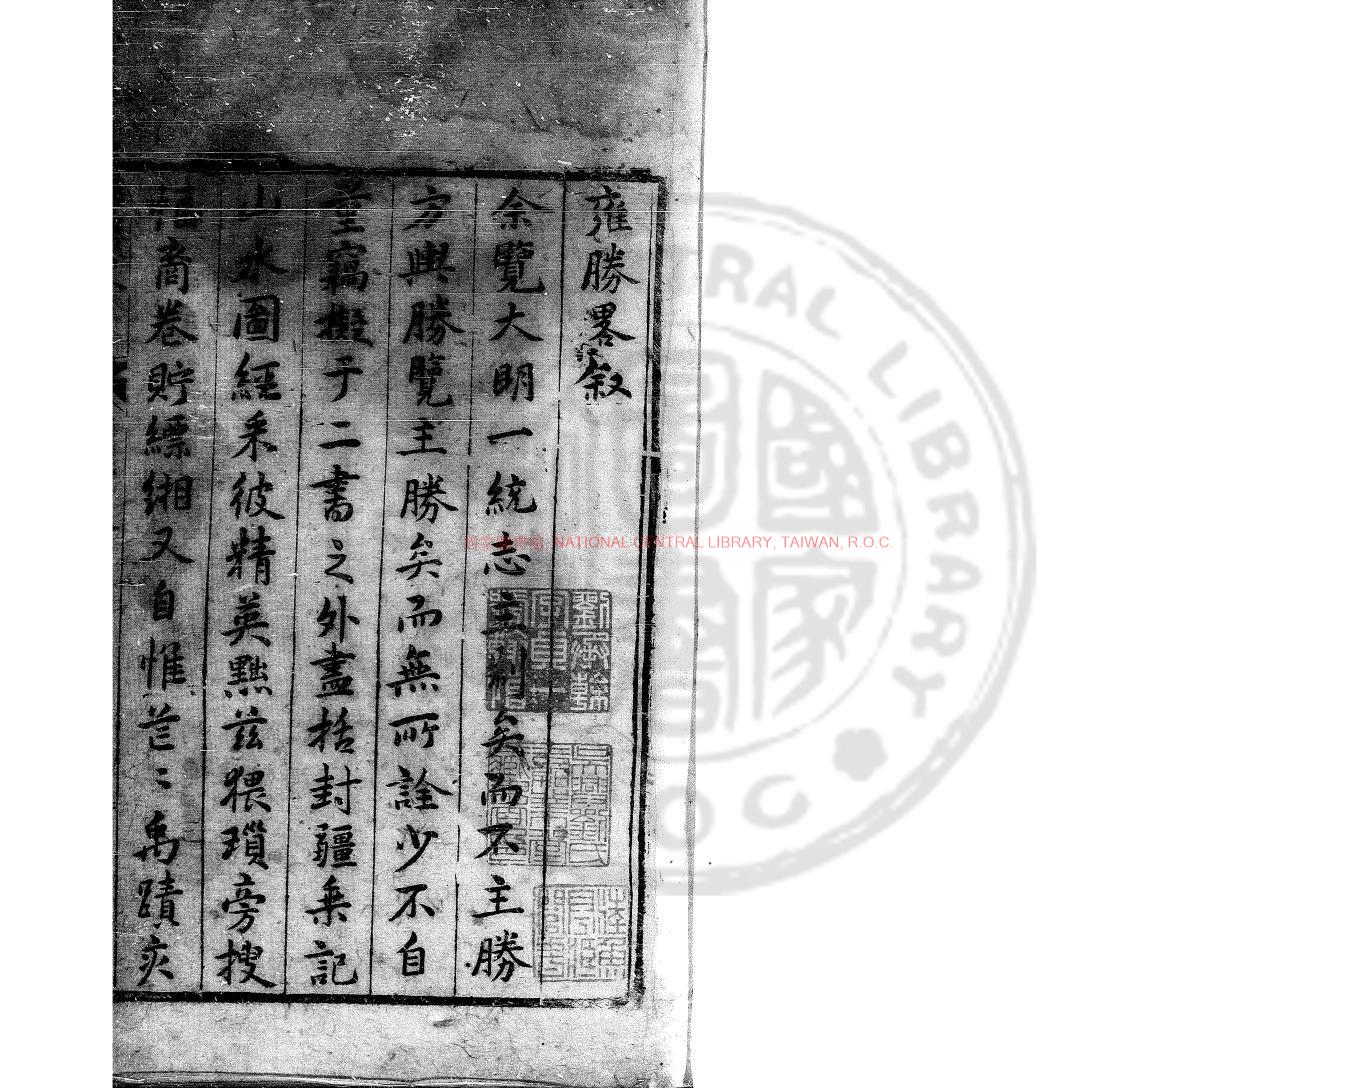 雍勝畧叙
余覽大明一統志主制矣而不主勝
方輿勝覽主勝矣而無所詮少不自
量竊擬于二書之外盡括封疆乗記
山水圖經采彼精英黜玆猥瑣旁搜
啇卷貯縹緗又自惟芒〻禹蹟夾
國家圖書館 NATIONAL CENTRAL LIBRARY, TAIWAN, R.O.C.
RAL LIBRARY
國家